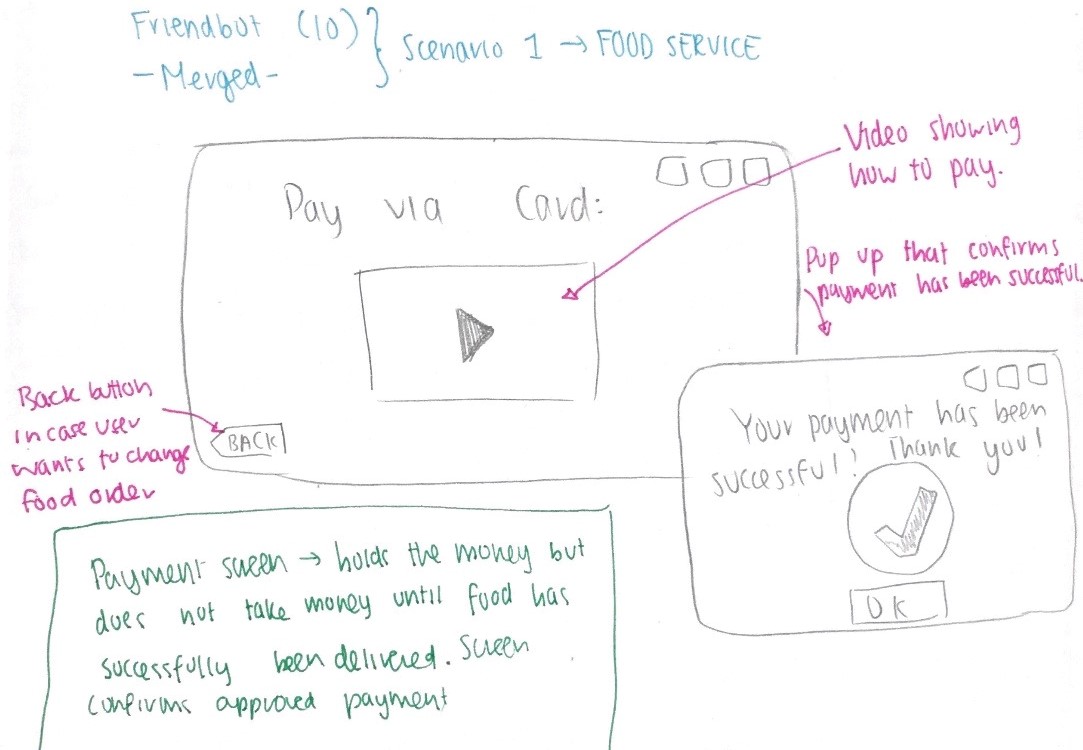 Friendbot (10) } Scenario 1 → FOOD SERVICE
-Merged-
Video showing
how to pay.
Pay via Card:
Pop up that confirms
payment has been successful.
Back button
in case user
wants to change
food order
BACK
Your payment has been
successful! Thank you!
OK
Payment screen → holds the money but
does not take money until food has
successfully been delivered. Screen
confirms approved payment